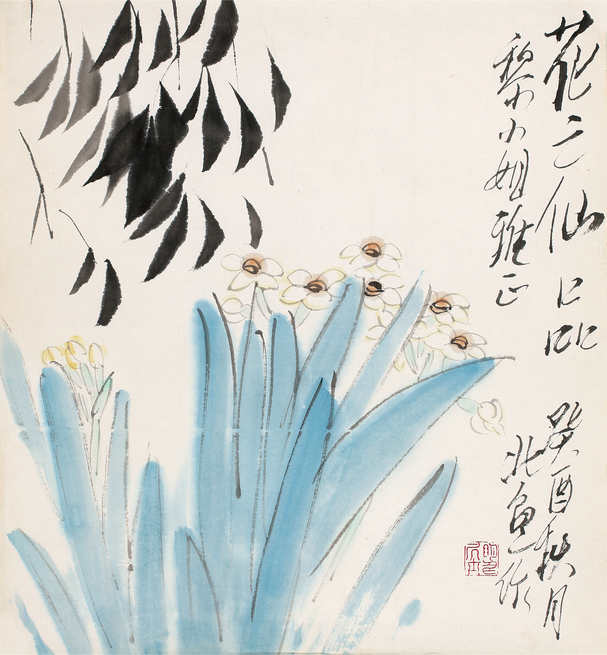 花之仙品 癸酉秋月
黎小姐雅正 北魚作